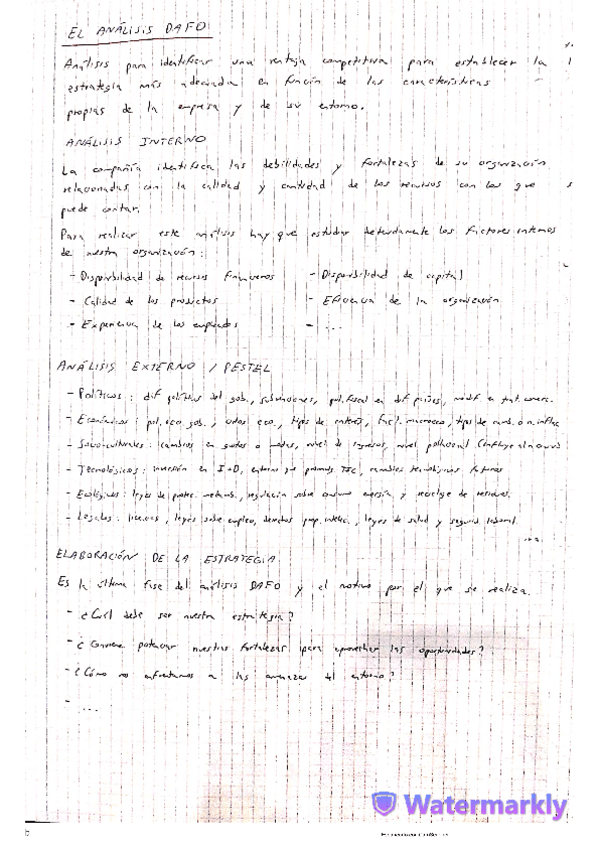 EL ANÁLISIS DAFO
Análisis para identificar una ventaja competitiva para establecer la
estrategia más adecuada en función de las características
propias de la empresa y de su entorno.
ANÁLISIS INTERNO
La compañía identifica las debilidades y fortalezas de su organización
relacionadas con la calidad y cantidad de los recursos con los que
puede contar.
Para realizar este análisis hay que estudiar detenidamente los factores internos
de nuestra organización:
- Disponibilidad de recursos financieros - Disponibilidad de capital
- Calidad de los productos - Eficiencia de la organización
- Experiencia de los empleados - ...
ANÁLISIS EXTERNO / PESTEL
- Políticos: dif políticas del gob., subvenciones, pol. fiscal en dif países, modif en trat. comerc.
- Económicos: pol. eco. gob., ciclos eco., tipos de interés, fact. macroeco, tipos de camb. o n. inflac
- Socio-culturales: cambios en gustos o modas, nivel de ingresos, nivel poblacional
- Tecnológicos: inversión en I+D, entorno que promueva TIC, cambios tecnológicos futuros
- Ecológicos: leyes de protec. medioamb., regulación sobre consumo energía y reciclaje de residuos.
- Legales: licencias, leyes sobre empleo, derechos prop. intelec., leyes de salud y seguridad laboral.
...
ELABORACIÓN DE LA ESTRATEGIA
Es la última fase del análisis DAFO y el motivo por el que se realiza.
- ¿Cuál debe ser nuestra estrategia?
- ¿Conviene potenciar nuestras fortalezas para aprovechar las oportunidades?
- ¿Cómo nos enfrentamos a las amenazas del entorno?
- ....
Watermarkly